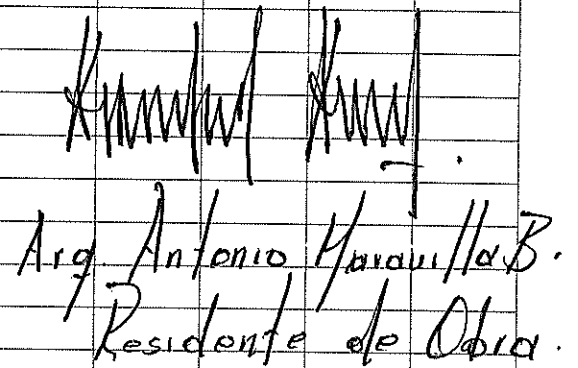 Arq. Antonio Maravilla B.
Residente de Obra.